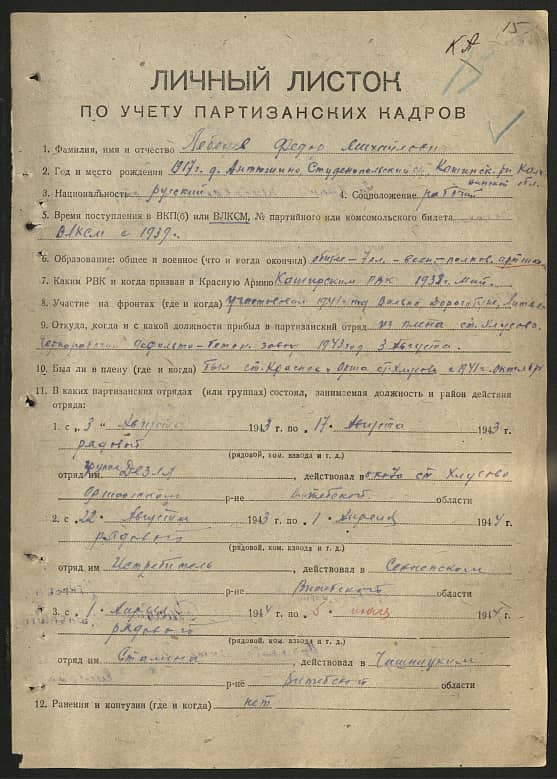 15
КА
ЛИЧНЫЙ ЛИСТОК
ПО УЧЕТУ ПАРТИЗАНСКИХ КАДРОВ
1. Фамилия, имя и отчество Федор Михайлович
2. Год и место рождения 1917 г. д. Студенопольский Каширск. р-н
3. Национальность русский 4. Соцположение рабочий
5. Время поступления в ВКП(б) или ВЛКСМ, № партийного или комсомольского билета
ВЛКСМ с 1939 г.
6. Образование: общее и военное (что и когда окончил) общее - 7 кл. - воен - полков.
7. Каким РВК и когда призван в Красную Армию Каширским РВК 1938 г. Май.
8. Участие на фронтах (где и когда) участвовал 1941 год
9. Откуда, когда и с какой должности прибыл в партизанский отряд из плена ст. Хлусово
завод 1943 год 3 Августа.
10. Был ли в плену (где и когда) был ст. Красное Орша ст. Хлусово с 1941 г. октябрь
11. В каких партизанских отрядах (или группах) состоял, занимаемая должность и район действия
отряда:
1. с „3" Августа 1943 г. по „17" Августа 1943 г.
рядовой
(рядовой, ком. взвода и т. д.)
группа
отряд им. , действовал в около ст Хлусово
Оршанском р-не Витебской области
2. с „22" Августа 1943 г. по „1" Апреля 1944 г.
рядового
(рядовой, ком. взвода и т. д.)
отряд им Истребитель , действовал в Сенненском
р-не Витебской области
3. с „1" Апреля 1944 г. по „5" июля 1944 г.
рядового
(рядовой, ком. взвода и т. д.)
отряд им. Сталина , действовал в Чашницким
р-не Витебской области
12. Ранения и контузии (где и когда) нет